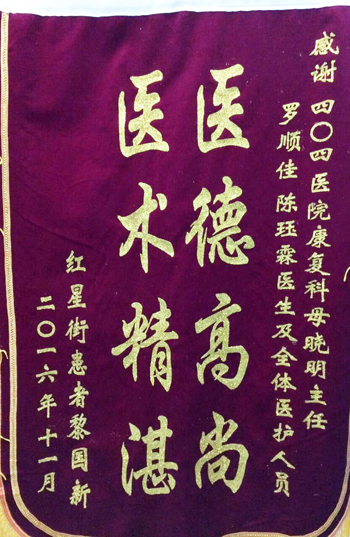 感谢 四〇四医院康复科母晓明主任
罗顺佳 陈珏霖医生及全体医护人员
医德高尚
医术精湛
红星街患者黎国新
二〇一六年十一月